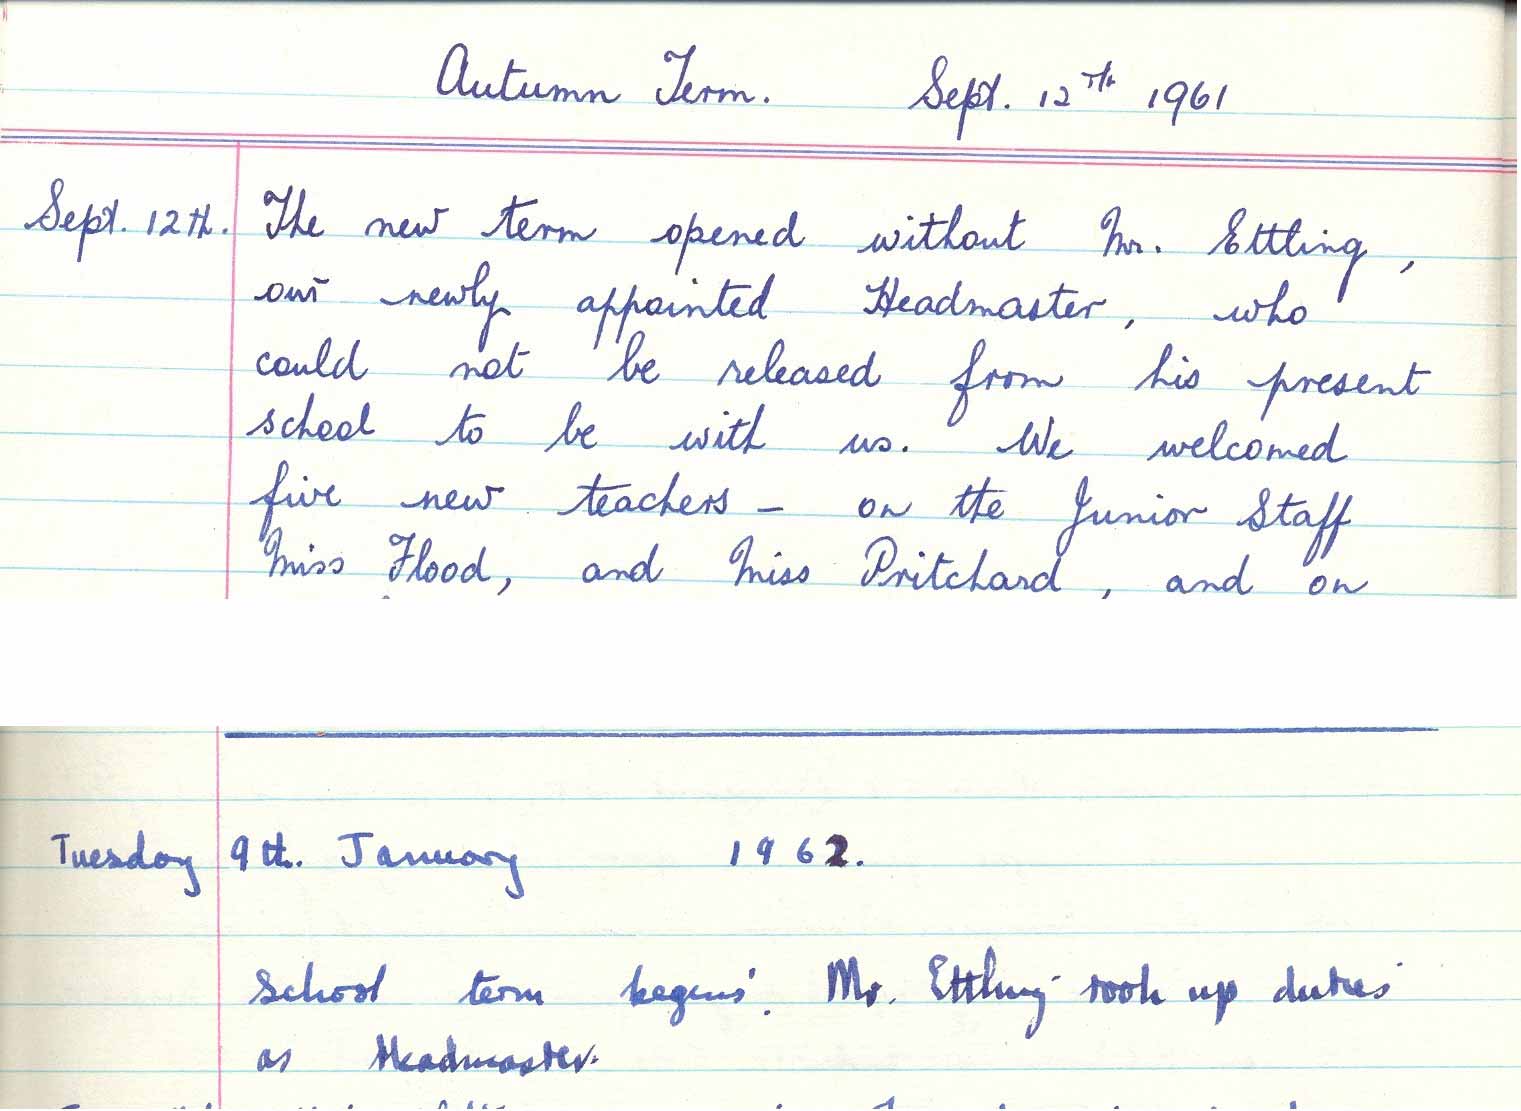 Autumn Term. Sept. 12th 1961
Sept. 12th. The new term opened without Mr. Ettling,
our newly appointed Headmaster, who
could not be released from his present
school to be with us. We welcomed
five new teachers – on the Junior Staff
Miss Flood, and Miss Pritchard, and on
Tuesday 9th. January 1962.
School term begins. Mr. Ettling took up duties
as Headmaster.